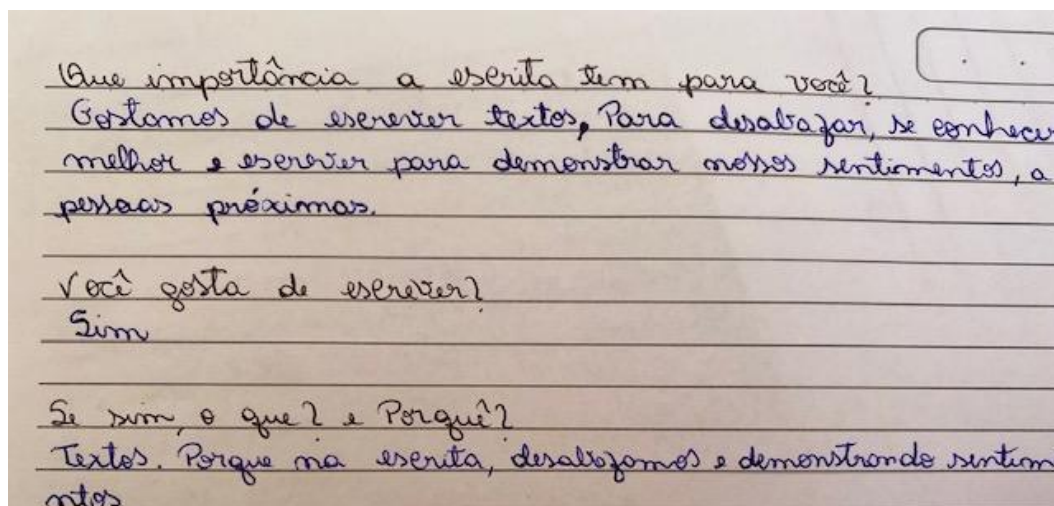 Que importância a escrita tem para você?
Gostamos de escrever textos, Para desabafar, se conhecer
melhor e escrever para demonstrar nossos sentimentos, a
pessoas próximas.
Você gosta de escrever?
Sim
Se sim, o que? e Porquê?
Textos. Porque na escrita, desabafamos e demonstrando sentim
entos